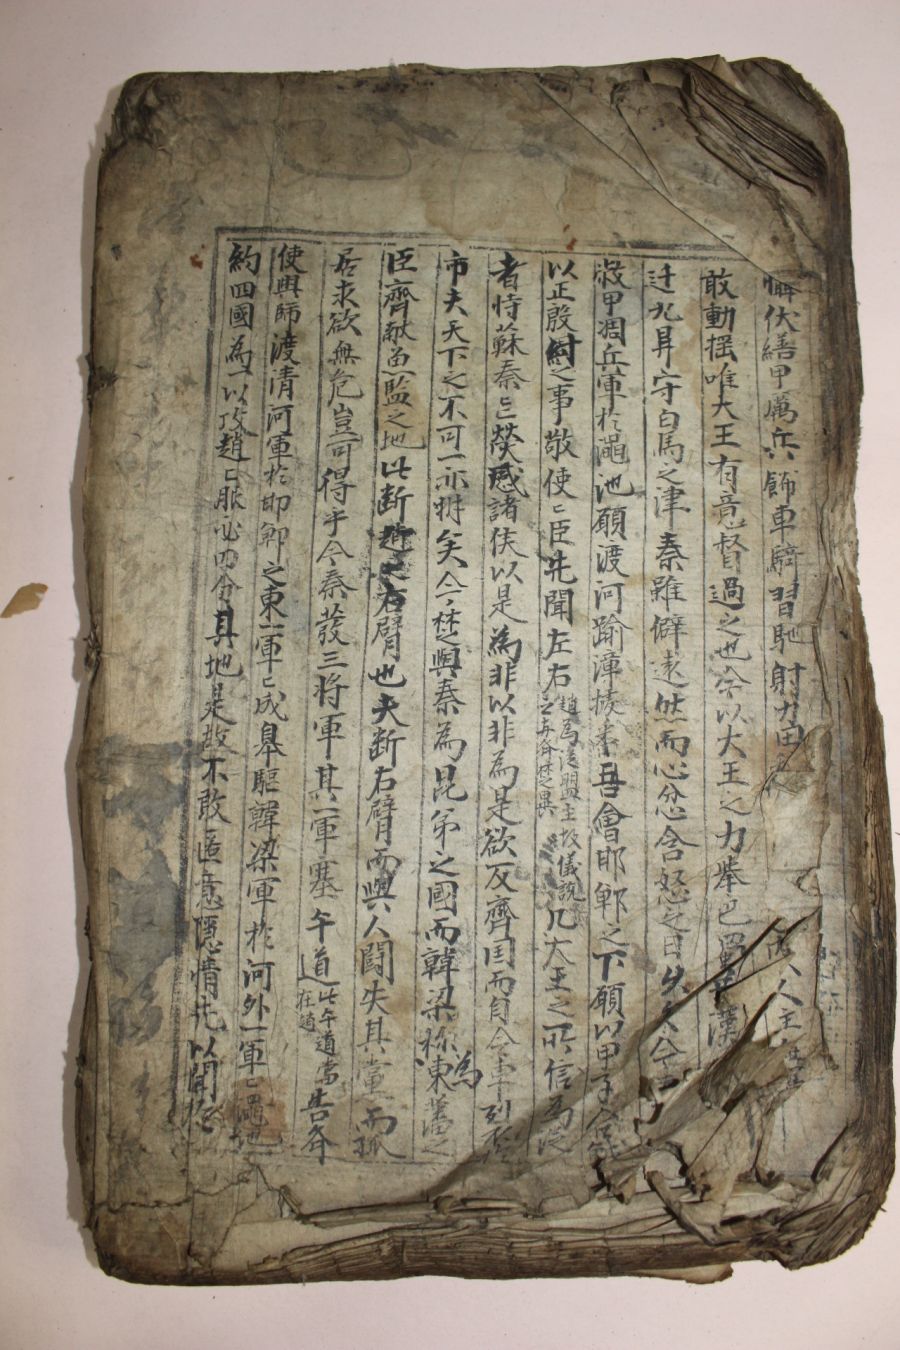 懼伏繕甲厲兵飾車騎習馳射力田
敢動搖唯大王有意督過之也今以大王之力擧巴蜀 漢
迁九鼎守白馬之津秦雖僻遠然而心忿含怒之日久矣今
敝甲凋兵軍於澠池願渡河踰漳據番吾會邯鄲之下願以甲子合戰
以正殷紂之事敬使〻臣先聞左右趙為從盟主故儀說之与合世異凡大王之所信為從
者恃蘇秦〻熒惑諸侯以是為非以非為是欲反齊国而自令車裂於
市夫天下之不可一亦明矣今楚與秦為昆弟之國而韓梁称為東藩之
臣齊献魚塩之地此断趙之右臂也夫断右臂而與人闘失其黨而孤
居求欲無危豈可得乎今秦發三将軍其一軍塞午道此午道當在趙告齊
使興師渡清河軍於邯鄲之東一軍〻成皐驅韓梁軍於河外一軍〻澠池
約四國為一以攻趙〻服必四分其地是故不敢匿意隱情先以聞於